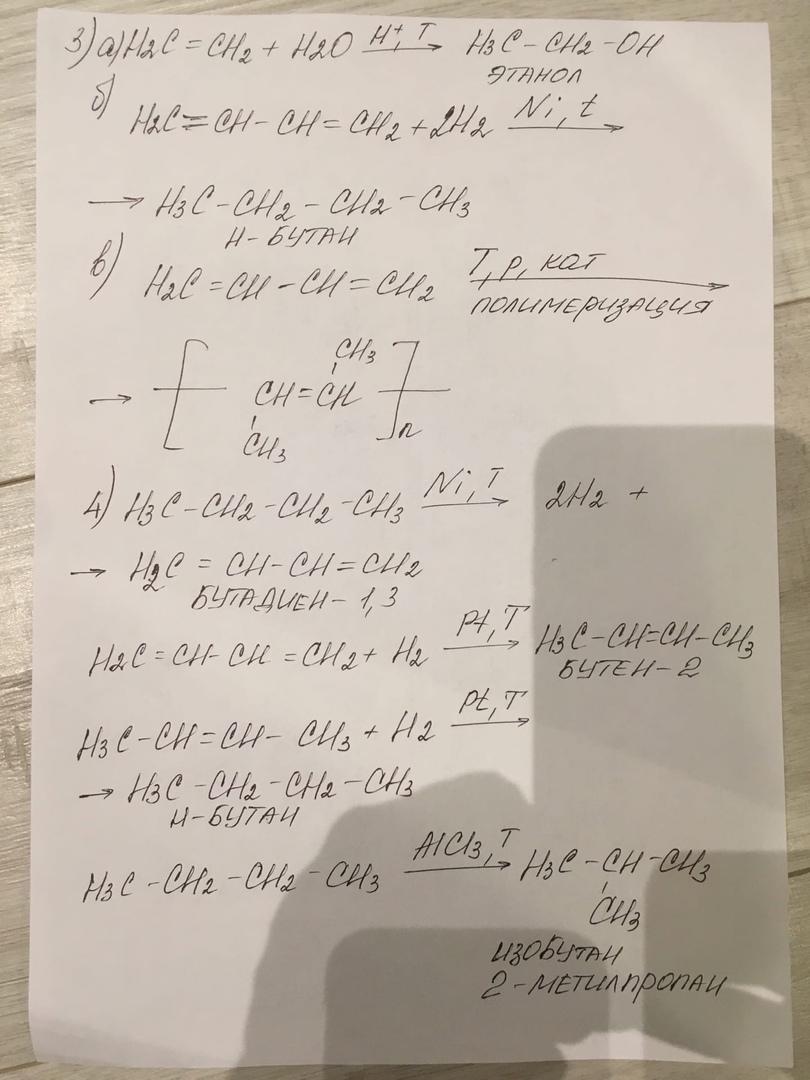 3) а) H2C = CH2 + H2O H+, T H3C - CH2 - OH
ЭТАНОЛ
б)
H2C = CH - CH = CH2 + 2H2 Ni, t
→ H3C - CH2 - CH2 - CH3
Н - БУТАН
в) H2C = CH - CH = CH2 T, p, кат
ПОЛИМЕРИЗАЦИЯ
CH3
→ [ CH = CH ]n
CH3
4) H3C - CH2 - CH2 - CH3 Ni, T 2H2 +
→ H2C = CH - CH = CH2
БУТАДИЕН - 1,3
H2C = CH - CH = CH2 + H2 Pt, T H3C - CH = CH - CH3
БУТЕН - 2
H3C - CH = CH - CH3 + H2 Pt, T
→ H3C - CH2 - CH2 - CH3
Н - БУТАН
H3C - CH2 - CH2 - CH3 AlCl3, T H3C - CH - CH3
CH3
ИЗОБУТАН
2 - МЕТИЛПРОПАН